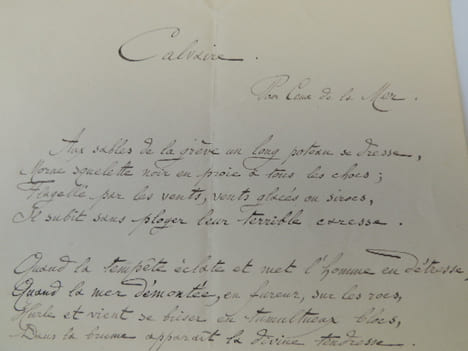 Calvaire.
Pour Ceux de la Mer.
Aux sables de la grève un long poteau se dresse,
Morne squelette noir en proie à tous les chocs;
Flagellé par les vents, vents glacés ou sirocs,
Il subit sans ployer leur terrible caresse.
Quand la tempête éclate et met l'homme en détresse,
Quand la mer démontée, en fureur, sur les rocs,
Hurle et vient se briser en tumultueux blocs,
Dans la brume apparaît la divine tendresse.